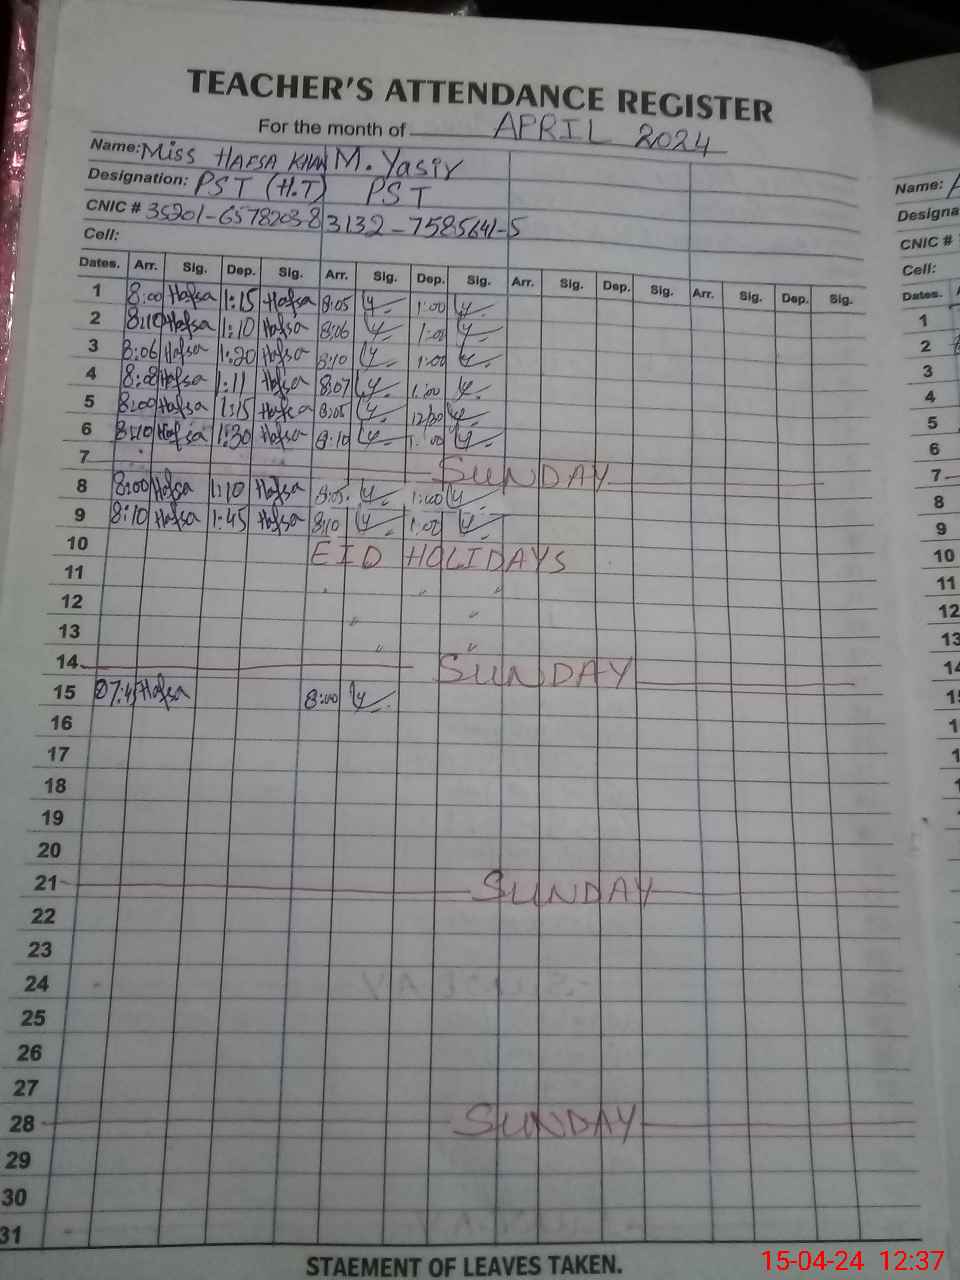 TEACHER'S ATTENDANCE REGISTER
For the month of APRIL 2024
Name: Miss HAFSA KHAN M. Yasir
Designation: PST (H.T) PST
CNIC # 35201-6578203-8 3132-7585641-5
Cell:
Dates. Arr. Sig. Dep. Sig. Arr. Sig. Dep. Sig. Arr. Sig. Dep. Sig. Arr. Sig. Dep. Sig.
1 8:00 Hafsa 1:15 Hafsa 8:05 1:00
2 8:10 Hafsa 1:10 Hafsa 8:06 1:00
3 8:06 Hafsa 1:20 Hafsa 8:10 1:00
4 8:08 Hafsa 1:11 Hafsa 8:07 1:00
5 8:00 Hafsa 1:15 Hafsa 8:05
6 8:10 Hafsa 1:30 Hafsa 8:10 1:00
7 SUNDAY
8 8:00 Hafsa 1:10 Hafsa 8:05 1:00
9 8:10 Hafsa 1:45 Hafsa 8:10 1:00
10 EID HOLIDAYS
11 " " "
12 " "
13 " "
14 SUNDAY
15 07:45 Hafsa 8:00
16
17
18
19
20
21 SUNDAY
22
23
24
25
26
27
28 SUNDAY
29
30
31
STAEMENT OF LEAVES TAKEN.
Name:
Designa
CNIC #
Cell:
Dates.
1
2
3
4
5
6
7
8
9
10
11
12
13
14
15-04-24 12:37